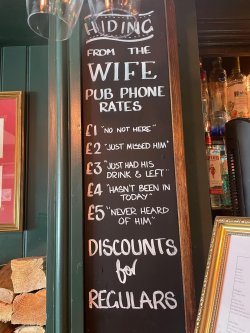 HIDING
FROM THE
WIFE
PUB PHONE
RATES
£1 "NO NOT HERE"
£2 "JUST MISSED HIM"
£3 "JUST HAD HIS
DRINK & LEFT"
£4 "HASN'T BEEN IN
TODAY"
£5 "NEVER HEARD
OF HIM"
DISCOUNTS
for
REGULARS